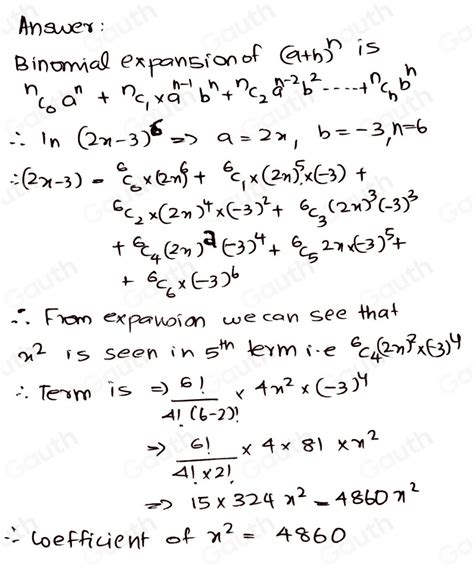 Answer:
Binomial expansion of (a+b)^n is
ⁿC₀ aⁿ + ⁿC₁ × a^(n-1) bⁿ + ⁿC₂ a^(n-2) b² ----- + ⁿCₙ bⁿ
∴ In (2x-3)⁶ => a = 2x, b = -3, n=6
∴ (2x-3) = ⁶C₀ × (2x)⁶ + ⁶C₁ × (2x)⁵ × (-3) +
⁶C₂ × (2x)⁴ × (-3)² + ⁶C₃ (2x)³ (-3)³
+ ⁶C₄ (2x)² (-3)⁴ + ⁶C₅ 2x × (-3)⁵ +
+ ⁶C₆ × (-3)⁶
∴ From expansion we can see that
x² is seen in 5th term i.e ⁶C₄ (2x)² × (-3)⁴
∴ Term is => 6! / 4! (6-2)! × 4x² × (-3)⁴
=> 6! / 4! × 2! × 4 × 81 × x²
=> 15 × 324 x² = 4860 x²
∴ Coefficient of x² = 4860